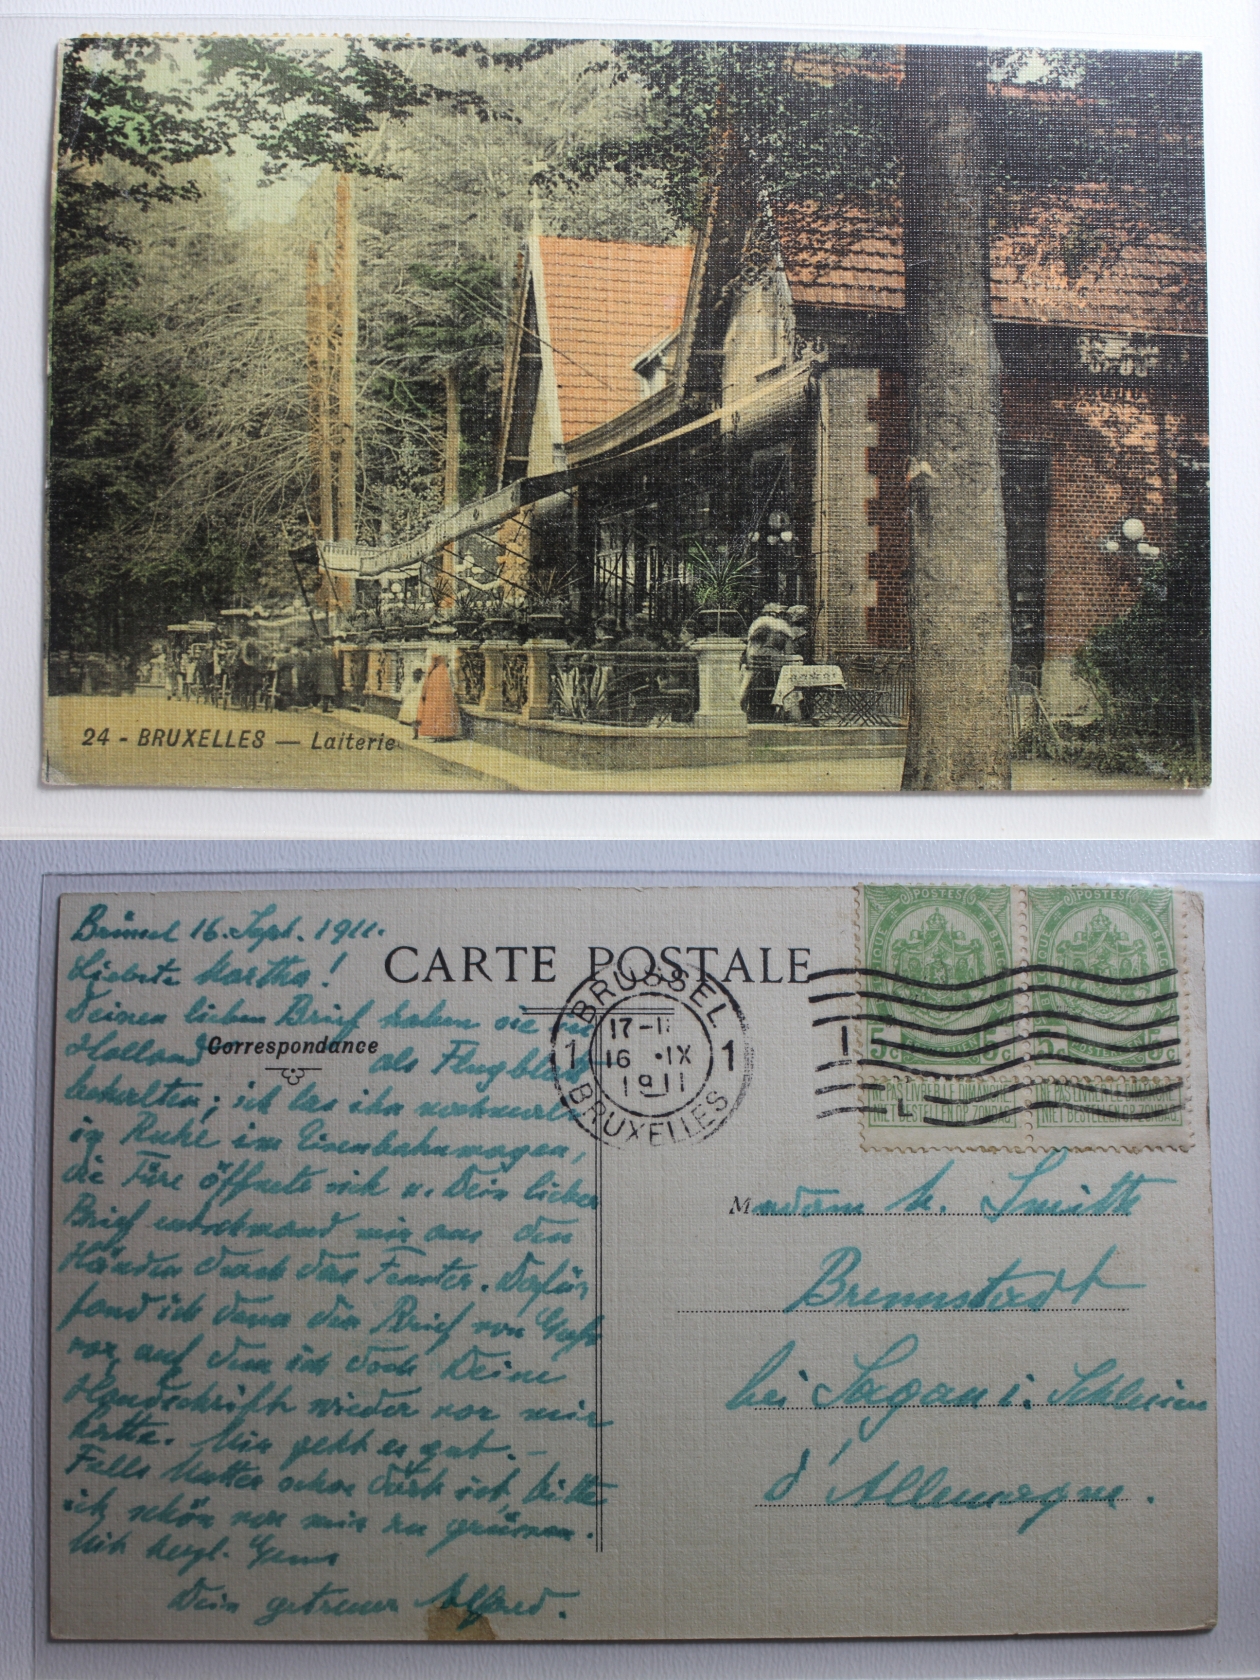 24 - BRUXELLES — Laiterie
Brüssel 16. Sept. 1911.
Liebste Martha!
CARTE POSTALE
Correspondance
Deinen lieben Brief haben sie in
Holland als Flugblatt
behalten; ich las ihn nochmals
in Ruhe im Eisenbahnwagen,
die Türe öffnete sich u. Dein lieber
Brief entschwand mir aus den
Händen durch das Fenster. Dafür
fand ich dann den Brief von
vor, auf dem ich doch Deine
Handschrift wieder vor mir
hatte. Mir geht es gut. —
Falls Mutter schon dort ist, bitte
ich schön von mir zu grüssen.
Mit herzl. Gruss
Dein getreuer Alfred.
BRUSSEL
17-1
1 16 · IX 1
1911
BRUXELLES
POSTES
POSTES
5c POSTERIJEN 5c
5c POSTERIJEN 5c
NE PAS LIVRER LE DIMANCHE
NIET BESTELLEN OP ZONDAG
NE PAS LIVRER LE DIMANCHE
NIET BESTELLEN OP ZONDAG
Madam M. Smitt
bei Sagan i. Schlesien
d'Allemagne.